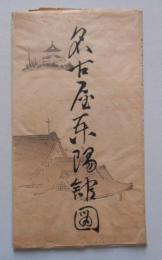 名古屋東陽館図